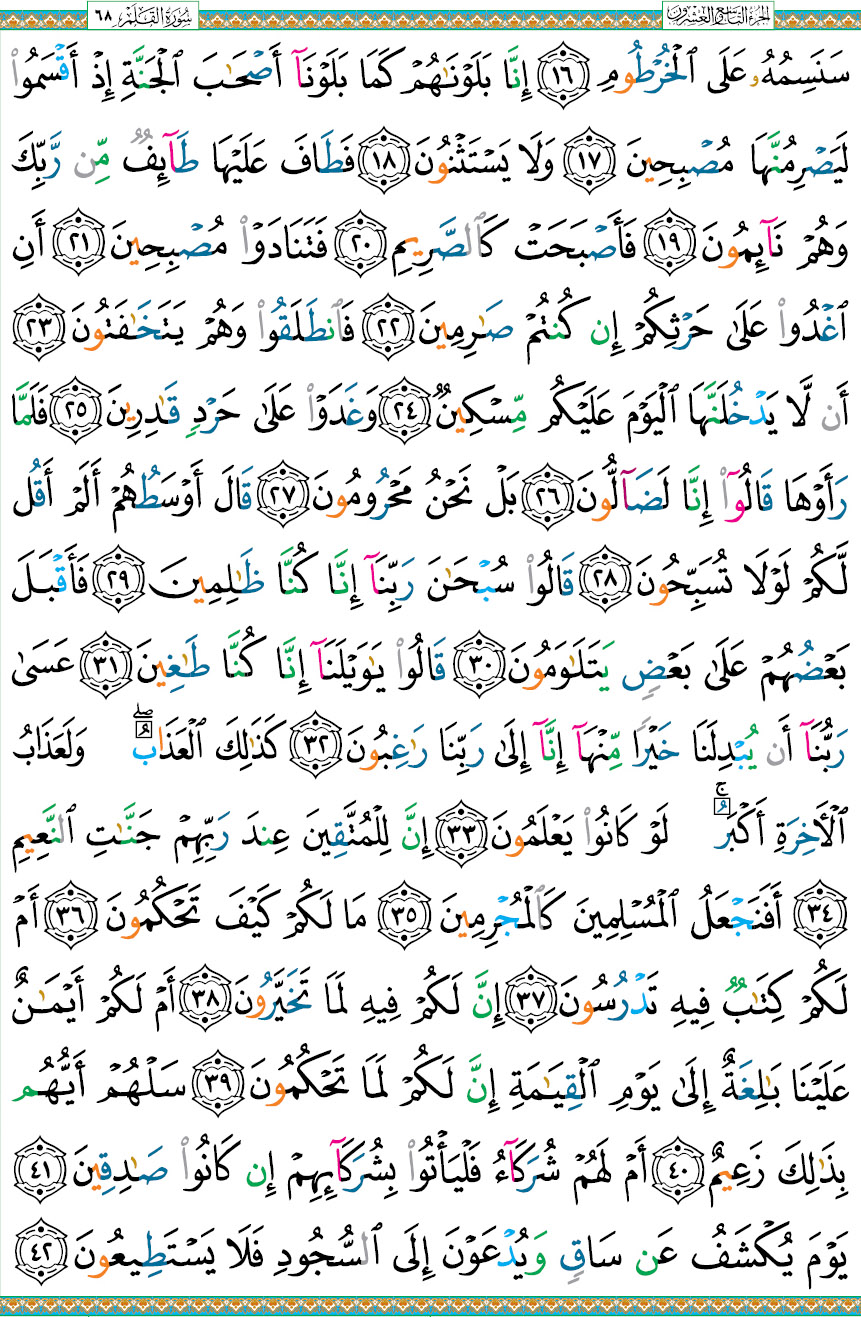 الجزء التاسع والعشرون سُورَةُ القَلَمِ ٦٨
سَنَسِمُهُۥ عَلَى ٱلْخُرْطُومِ ١٦ إِنَّا بَلَوْنَٰهُمْ كَمَا بَلَوْنَآ أَصْحَٰبَ ٱلْجَنَّةِ إِذْ أَقْسَمُوا۟
لَيَصْرِمُنَّهَا مُصْبِحِينَ ١٧ وَلَا يَسْتَثْنُونَ ١٨ فَطَافَ عَلَيْهَا طَآئِفٌ مِّن رَّبِّكَ
وَهُمْ نَآئِمُونَ ١٩ فَأَصْبَحَتْ كَٱلصَّرِيمِ ٢٠ فَتَنَادَوْا۟ مُصْبِحِينَ ٢١ أَنِ
ٱغْدُوا۟ عَلَىٰ حَرْثِكُمْ إِن كُنتُمْ صَٰرِمِينَ ٢٢ فَٱنطَلَقُوا۟ وَهُمْ يَتَخَٰفَتُونَ ٢٣
أَن لَّا يَدْخُلَنَّهَا ٱلْيَوْمَ عَلَيْكُم مِّسْكِينٌ ٢٤ وَغَدَوْا۟ عَلَىٰ حَرْدٍ قَٰدِرِينَ ٢٥ فَلَمَّا
رَأَوْهَا قَالُوٓا۟ إِنَّا لَضَآلُّونَ ٢٦ بَلْ نَحْنُ مَحْرُومُونَ ٢٧ قَالَ أَوْسَطُهُمْ أَلَمْ أَقُل
لَّكُمْ لَوْلَا تُسَبِّحُونَ ٢٨ قَالُوا۟ سُبْحَٰنَ رَبِّنَآ إِنَّا كُنَّا ظَٰلِمِينَ ٢٩ فَأَقْبَلَ
بَعْضُهُمْ عَلَىٰ بَعْضٍ يَتَلَٰوَمُونَ ٣٠ قَالُوا۟ يَٰوَيْلَنَآ إِنَّا كُنَّا طَٰغِينَ ٣١ عَسَىٰ
رَبُّنَآ أَن يُبْدِلَنَا خَيْرًا مِّنْهَآ إِنَّآ إِلَىٰ رَبِّنَا رَٰغِبُونَ ٣٢ كَذَٰلِكَ ٱلْعَذَابُ ۖ وَلَعَذَابُ
ٱلْأَخِرَةِ أَكْبَرُ ۚ لَوْ كَانُوا۟ يَعْلَمُونَ ٣٣ إِنَّ لِلْمُتَّقِينَ عِندَ رَبِّهِمْ جَنَّٰتِ ٱلنَّعِيمِ
٣٤ أَفَنَجْعَلُ ٱلْمُسْلِمِينَ كَٱلْمُجْرِمِينَ ٣٥ مَا لَكُمْ كَيْفَ تَحْكُمُونَ ٣٦ أَمْ
لَكُمْ كِتَٰبٌ فِيهِ تَدْرُسُونَ ٣٧ إِنَّ لَكُمْ فِيهِ لَمَا تَخَيَّرُونَ ٣٨ أَمْ لَكُمْ أَيْمَٰنٌ
عَلَيْنَا بَٰلِغَةٌ إِلَىٰ يَوْمِ ٱلْقِيَٰمَةِ إِنَّ لَكُمْ لَمَا تَحْكُمُونَ ٣٩ سَلْهُمْ أَيُّهُم
بِذَٰلِكَ زَعِيمٌ ٤٠ أَمْ لَهُمْ شُرَكَآءُ فَلْيَأْتُوا۟ بِشُرَكَآئِهِمْ إِن كَانُوا۟ صَٰدِقِينَ ٤١
يَوْمَ يُكْشَفُ عَن سَاقٍ وَيُدْعَوْنَ إِلَى ٱلسُّجُودِ فَلَا يَسْتَطِيعُونَ ٤٢